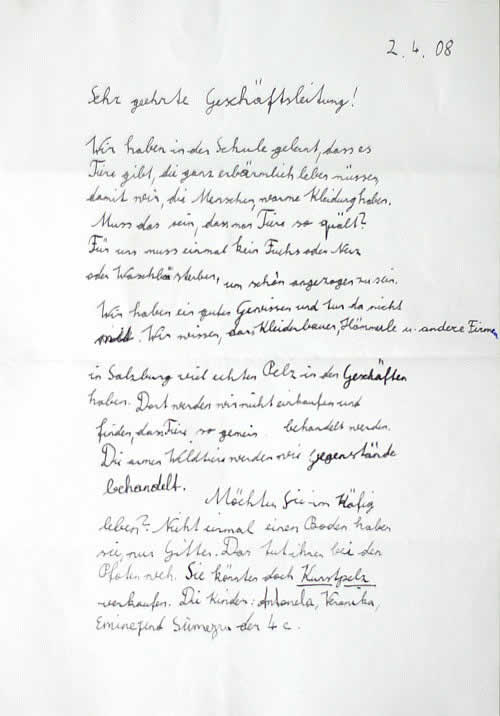 2.4.08
Sehr geehrte Geschäftsleitung!
Wir haben in der Schule gelernt, dass es
Tiere gibt, die ganz erbärmlich leben müssen,
damit wir, die Menschen, warme Kleidung haben.
Muss das sein, dass man Tiere so quält?
Für uns muss einmal kein Fuchs oder Nerz
oder Waschbär sterben, um schön angezogen zu sein.
Wir haben ein gutes Gewissen und tun da nicht
mit. Wir wissen, dass Kleiderbauer, Hämmerle u. andere Firmen
in Salzburg viel echten Pelz in den Geschäften
haben. Dort werden wir nicht einkaufen und
finden, dass Tiere so gemein behandelt werden.
Die armen Wildtiere werden wie Gegenstände
behandelt.
Möchten Sie im Käfig
leben? Nicht einmal einen Boden haben
sie, nur Gitter. Das tut ihnen bei den
Pfoten weh. Sie könnten doch Kunstpelz
verkaufen. Die Kinder: Antonela, Veronika,
der 4c.